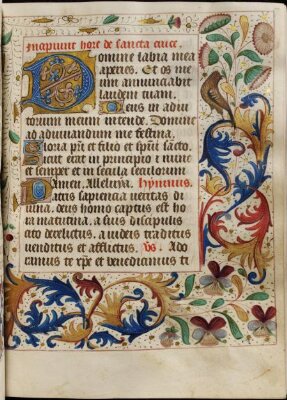 Incipiunt hore de sancta cruce.
Domine labia mea
aperies. Et os me
um annunciabit
laudem tuam.
Deus in adiu
torium meum intende. Domine
ad adiuuandum me festina,
Gloria pri et filio et spui sācto.
Sicut erat in principio z nunc
et semper et in secula seculorum
Amen. Alleluya. hymnus.
Patris sapiencia ueritas di
uina, deus homo captus est ho
ra matutina, a suis discipulis
cito derelictus, a iudeis traditus
uenditus et afflictus. vs. Ado
ramus te xpe et benedicimus te